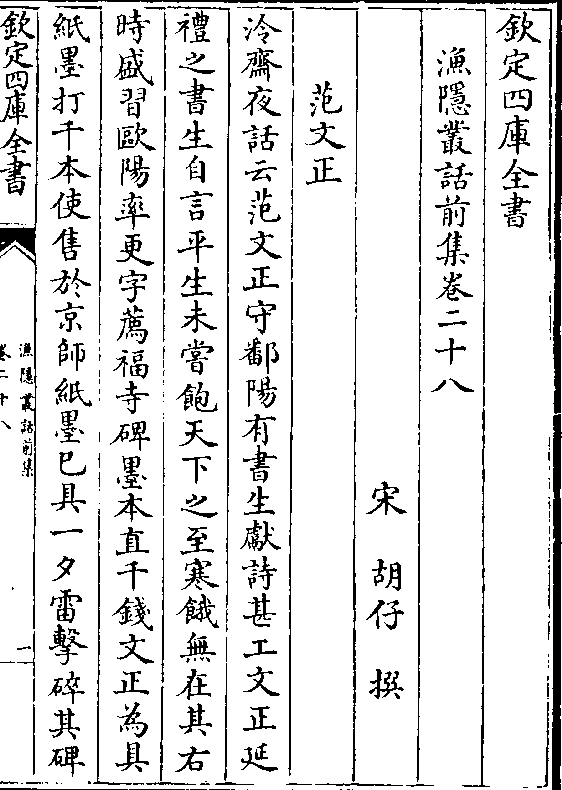 欽定四庫全書
漁隱叢話前集卷二十八
宋 胡仔 撰
范文正
冷齋夜話云范文正守鄱陽有書生獻詩甚工文正延
禮之書生自言平生未嘗飽天下之至寒餓無在其右
時盛習歐陽率更字薦福寺碑墨本直千錢文正為具
紙墨打千本使售於京師紙墨已具一夕雷擊碎其碑
欽定四庫全書
漁隱叢話前集
卷二十八
一